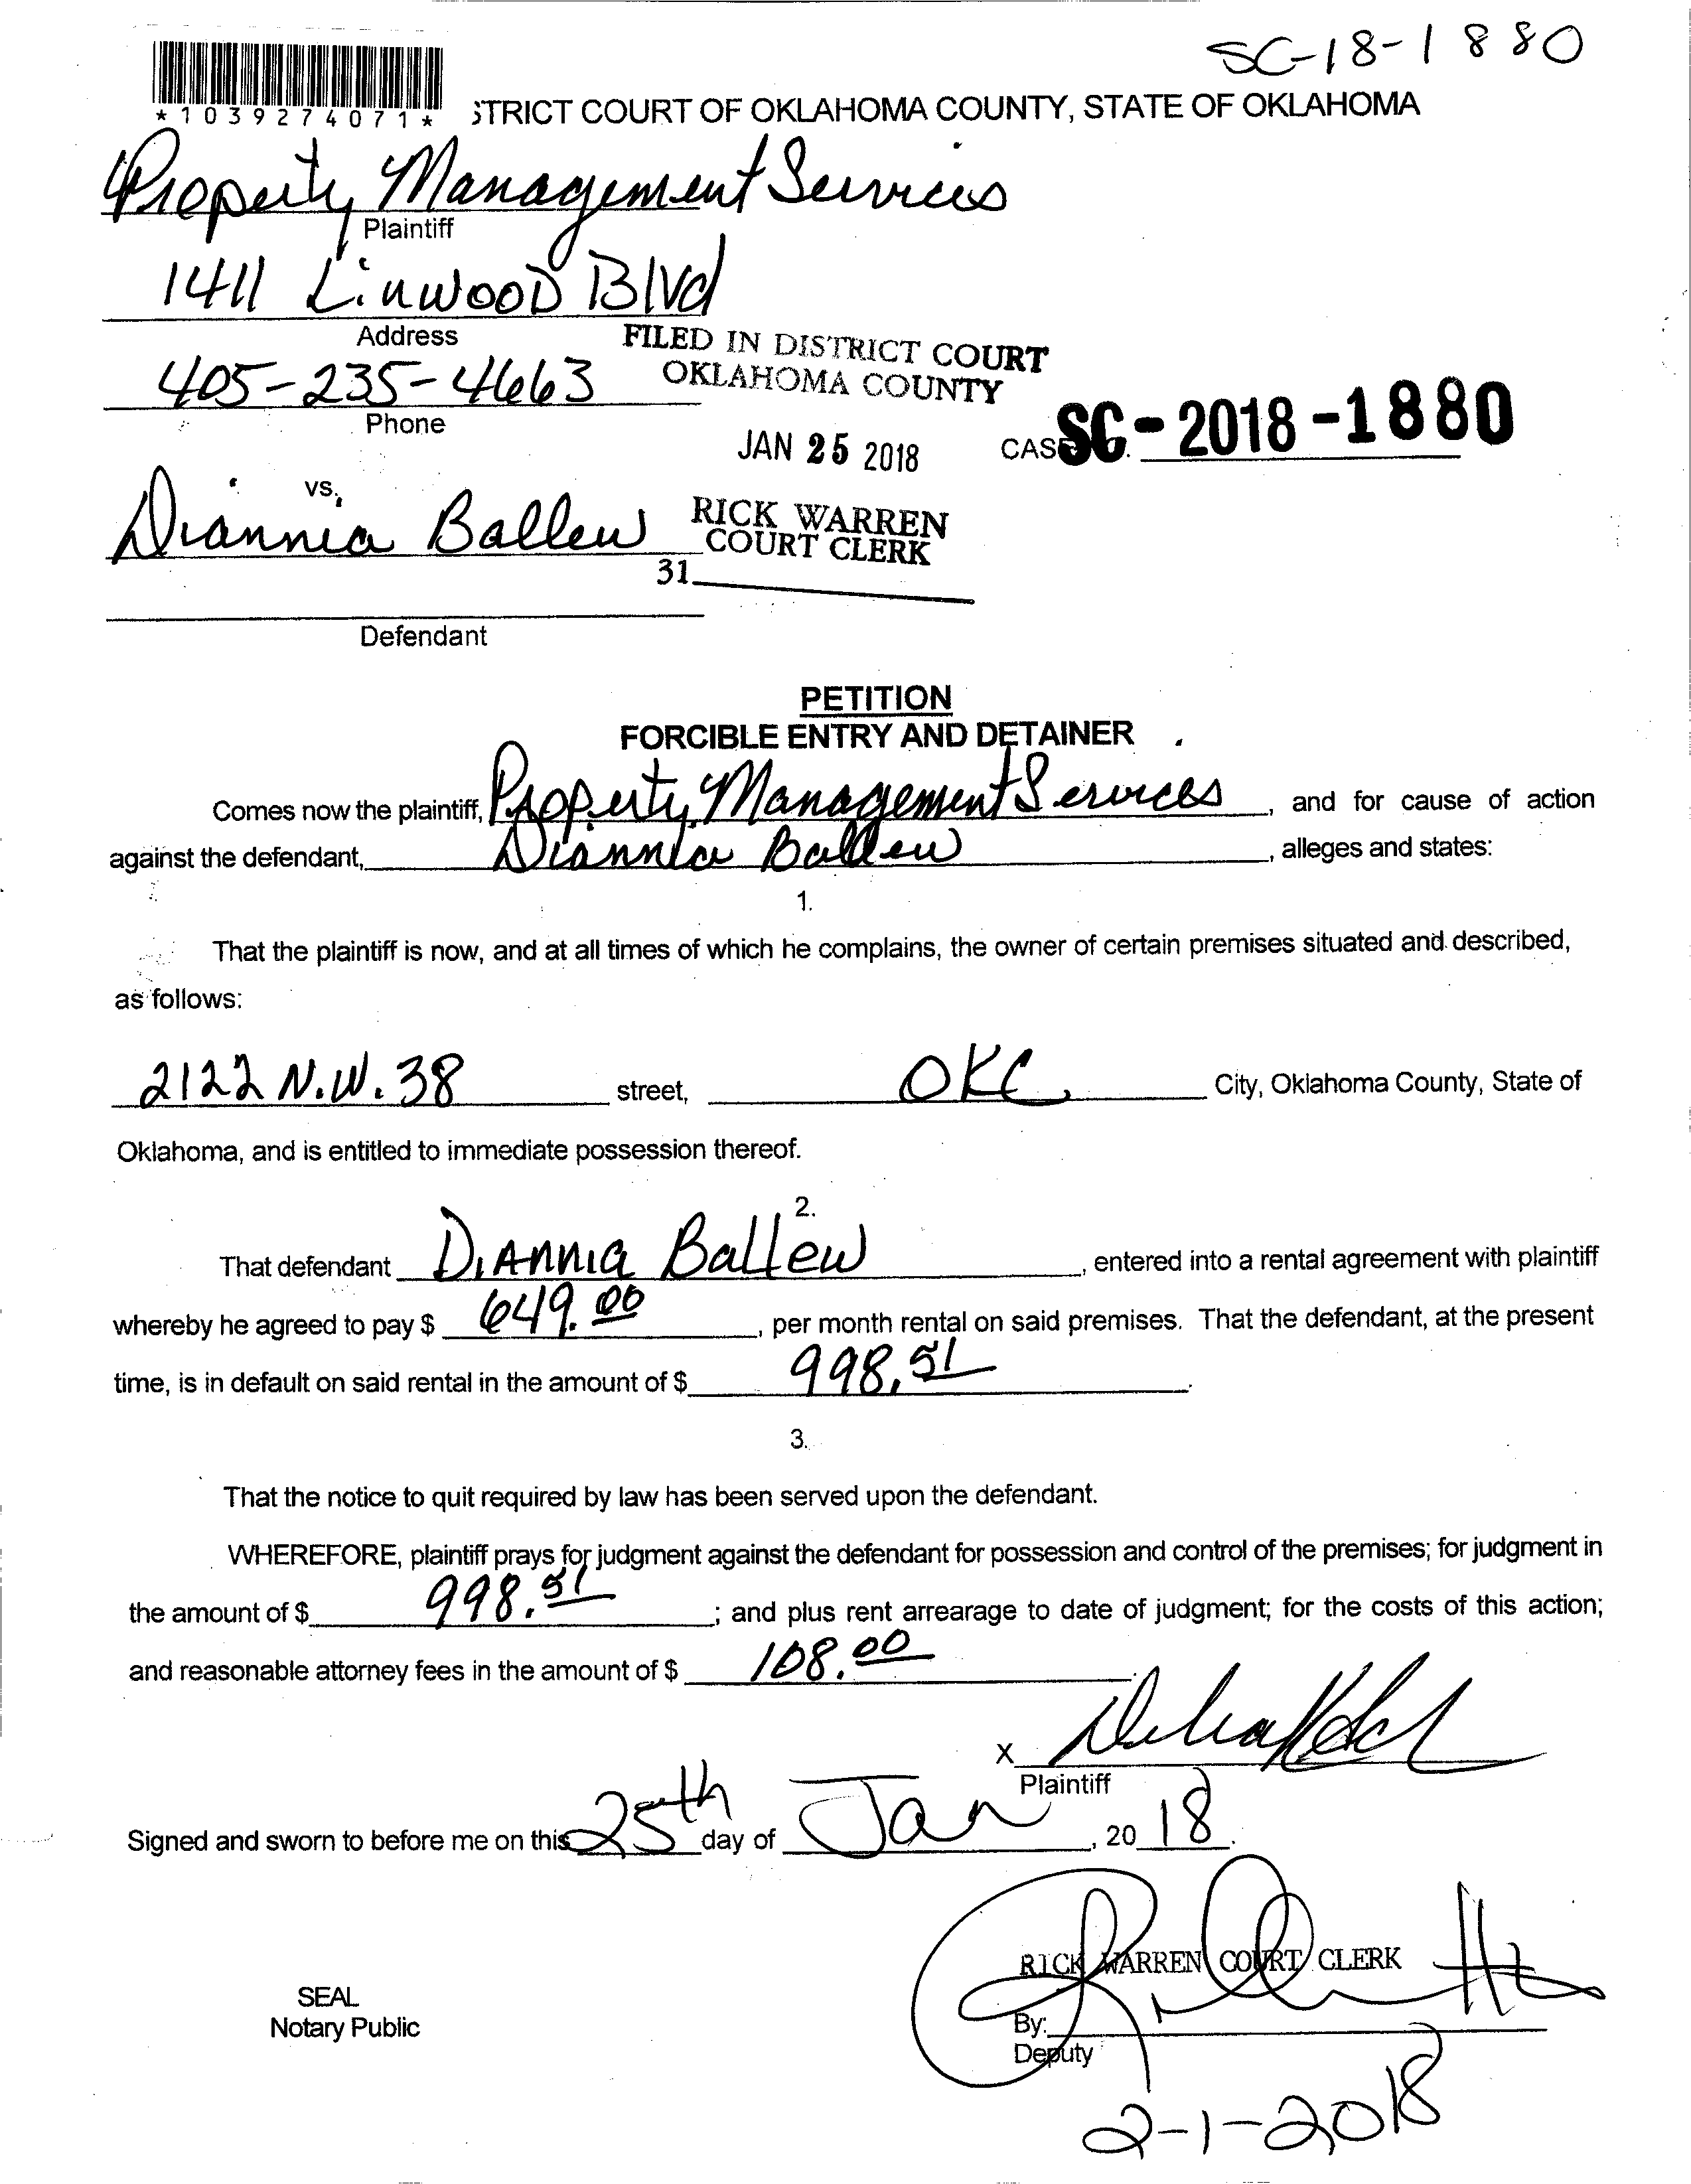 SC-18-1880
*1039274071*
STRICT COURT OF OKLAHOMA COUNTY, STATE OF OKLAHOMA
Property Management Services
Plaintiff
1411 Linwood Blvd
Address
405-235-4663
Phone
FILED IN DISTRICT COURT
OKLAHOMA COUNTY
JAN 25 2018
CAS SC-2018-1880
vs.
Diannia Ballew
RICK WARREN
COURT CLERK
31
Defendant
PETITION
FORCIBLE ENTRY AND DETAINER
Comes now the plaintiff, Property Management Services, and for cause of action
against the defendant, Diannia Ballew, alleges and states:
1.
That the plaintiff is now, and at all times of which he complains, the owner of certain premises situated and described,
as follows:
2122 N.W. 38 street, OKC, City, Oklahoma County, State of
Oklahoma, and is entitled to immediate possession thereof.
2.
That defendant Diannia Ballew, entered into a rental agreement with plaintiff
whereby he agreed to pay $ 649.00, per month rental on said premises. That the defendant, at the present
time, is in default on said rental in the amount of $ 998.51.
3.
That the notice to quit required by law has been served upon the defendant.
WHEREFORE, plaintiff prays for judgment against the defendant for possession and control of the premises; for judgment in
the amount of $ 998.51; and plus rent arrearage to date of judgment; for the costs of this action;
and reasonable attorney fees in the amount of $ 108.00.
X
Plaintiff
Signed and sworn to before me on this 25th day of Jan, 2018.
RICK WARREN COURT CLERK
SEAL
Notary Public
By:
Deputy
2-1-2018